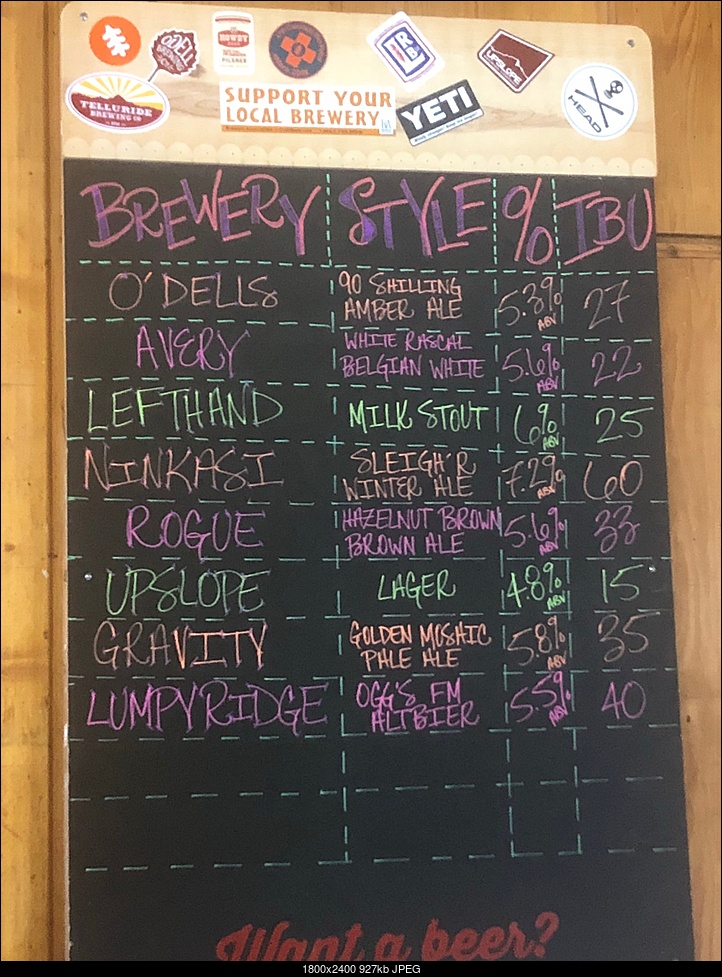 ODELL
BREWING CO
UPSLOPE
TELLURIDE
BREWING CO
SUPPORT YOUR
LOCAL BREWERY
YETI
HEAD
BREWERY STYLE % IBU
O'DELLS 90 SHILLING AMBER ALE 5.3% ABV 27
AVERY WHITE RASCAL BELGIAN WHITE 5.6% ABV 22
LEFTHAND MILK STOUT 6% ABV 25
NINKASI SLEIGH'R WINTER ALE 7.2% ABV 60
ROGUE HAZELNUT BROWN BROWN ALE 5.6% 33
UPSLOPE LAGER 4.8% ABV 15
GRAVITY GOLDEN MOSHIC PALE ALE 5.8% ABV 35
LUMPYRIDGE OGG'S FM ALTBIER 5.5% ABV 40
Want a beer?
1800x2400 927kb JPEG